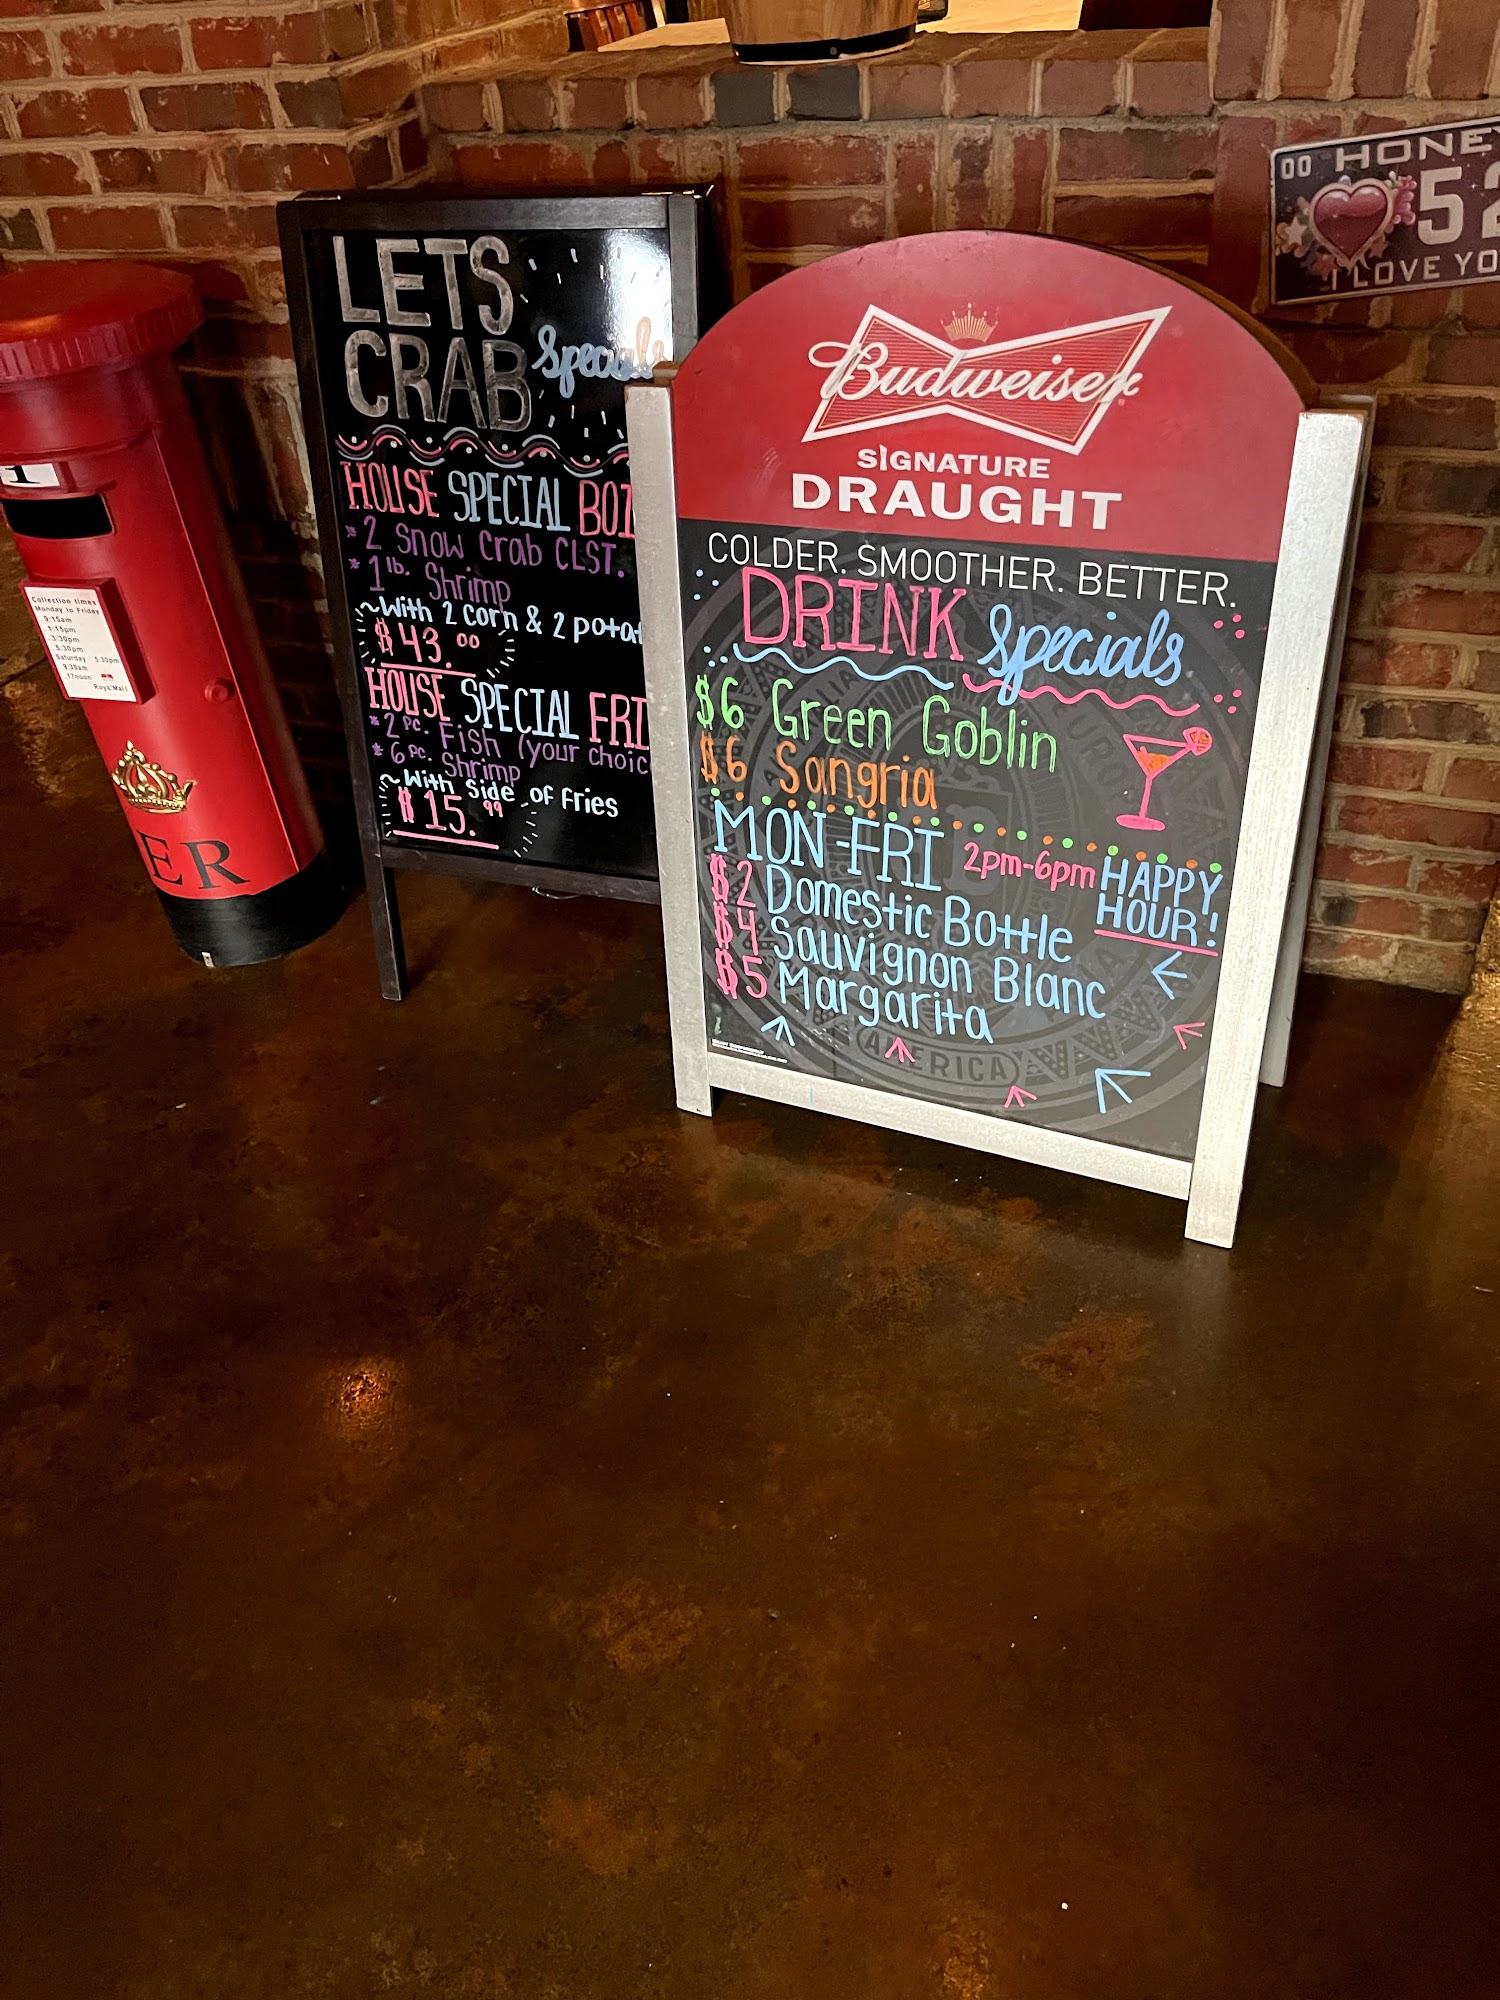 LETS
CRAB Specials
HOUSE SPECIAL BOI
* 2 Snow Crab CLST.
* 1 lb. Shrimp
~With 2 corn & 2 potat
$43.00
HOUSE SPECIAL FRI
* 2 PC. Fish (your choic
* 6 PC. Shrimp
~With side of fries
$15.99
Budweiser
SIGNATURE
DRAUGHT
COLDER. SMOOTHER. BETTER.
DRINK Specials
$6 Green Goblin
$6 Sangria
MON-FRI 2pm-6pm HAPPY
HOUR!
$2 Domestic Bottle
$4 Sauvignon Blanc
$5 Margarita
AMERICA
1
Collection times
Monday to Friday
9:15am
1:15pm
3.30pm
5.30pm
Saturday 5.30pm
9:30am
17noon
Royal Mail
ER
00 HONEY
52
I LOVE YO